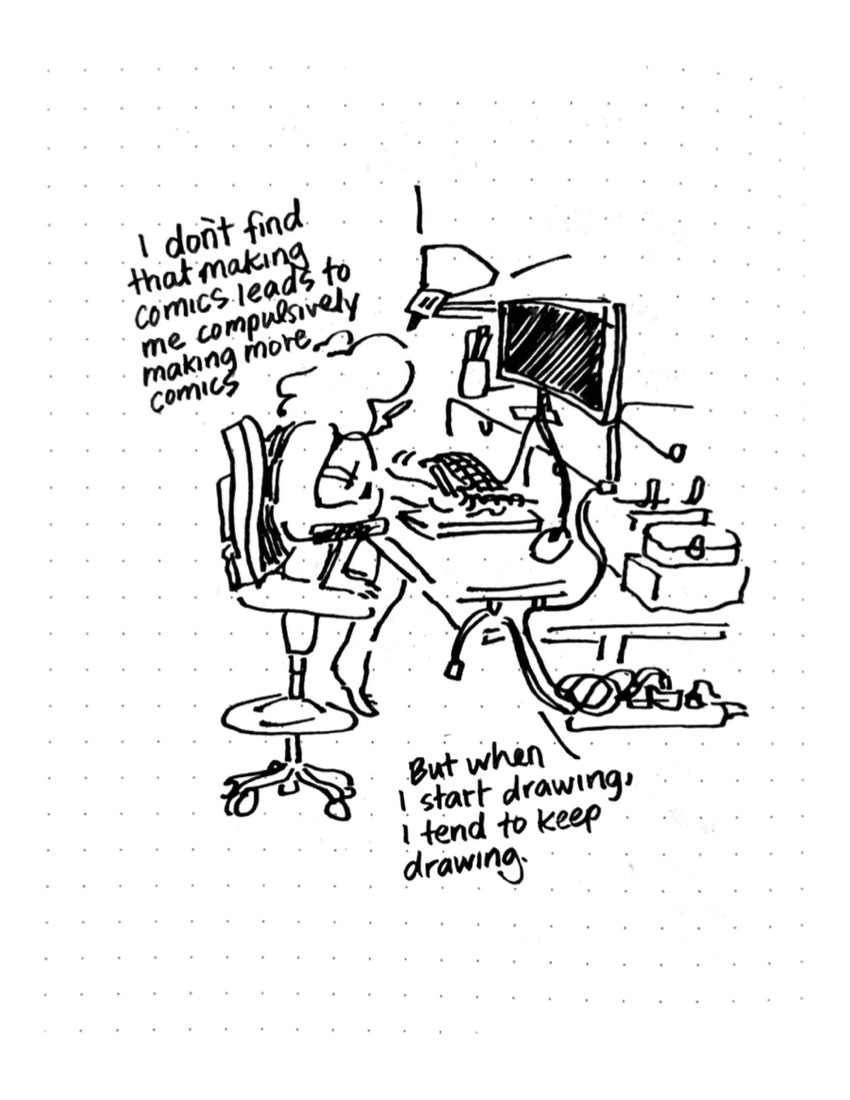 I don't find
that making
comics leads to
me compulsively
making more
comics
But when
I start drawing,
I tend to keep
drawing.